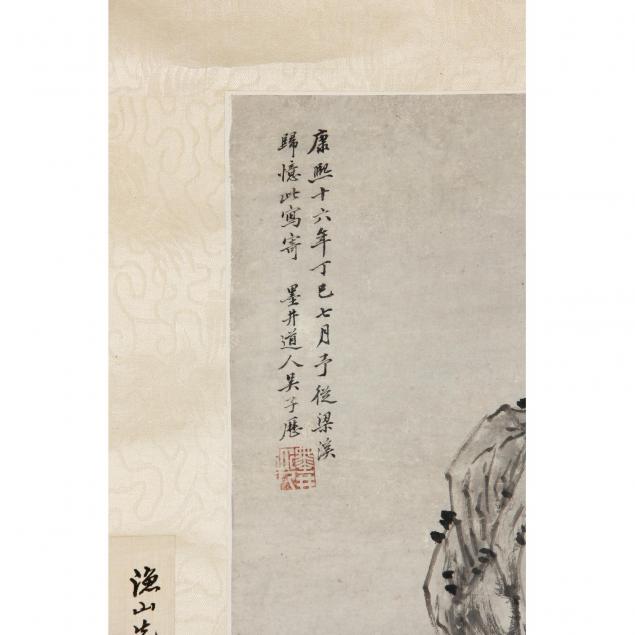 康熙十六年丁巳七月予從梁溪
歸憶此寫寄 墨井道人吳子歷
漁山先